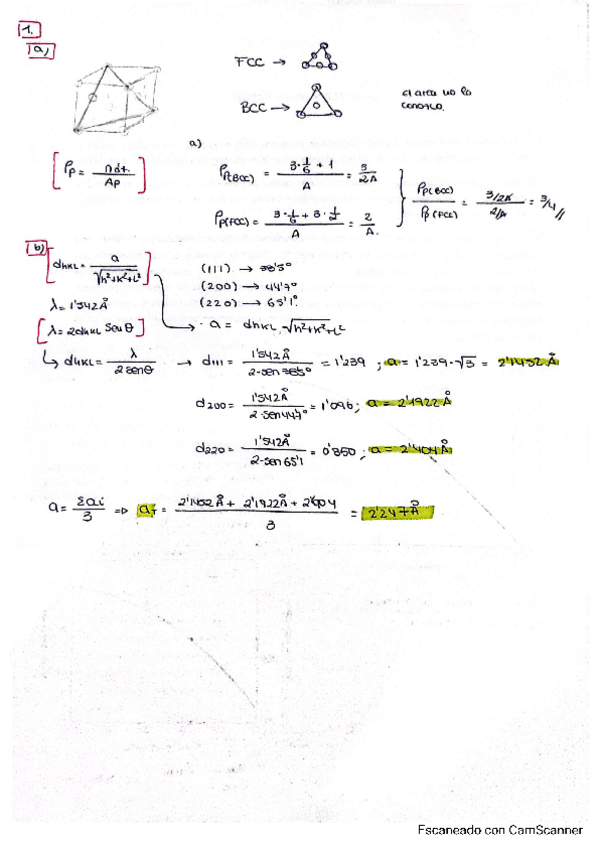 1.
a)
FCC →
BCC →
el area no la
conozco.
a)
[ρp = n at. / Ap]
ρp(BCC) = (3·1/6 + 1) / A = 3/2A
ρp(FCC) = (3·1/6 + 3·1/2) / A = 2/A.
ρp(BCC) / ρp(FCC) = (3/2A) / (2/A) = 3/4 //
b)
[dhKL = a / √(h²+K²+L²)]
(111) → 38'5°
(200) → 44'7°
(220) → 65'1°.
λ = 1'542Å
[λ = 2dhKL Senθ]
→ a = dhKL √(h²+K²+L²)
↳ dhKL = λ / 2senθ → d111 = 1'542Å / 2·sen 38'5° = 1'239 ; a = 1'239·√3 = 2'1452 Å
d200 = 1'542Å / 2·sen44'7° = 1'096; a = 2'1922 Å
d220 = 1'542Å / 2·sen65'1 = 0'850 ; a = 2'404 Å
a = Σai / 3 ⇒ aT = (2'1452 Å + 2'1922Å + 2'404) / 3 = 2'247 Å
Escaneado con CamScanner